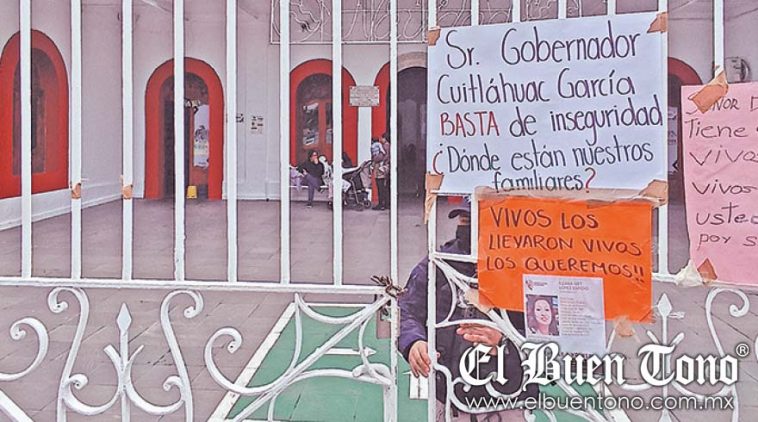 Sr. Gobernador
Cuitláhuac García
BASTA de inseguridad
¿Dónde están nuestros
familiares?
VIVOS LOS
LLEVARON VIVOS
LOS QUEREMOS!!
Tiene
vivos
vivos
usted
por s
El Buen Tono®
www.elbuentono.com.mx